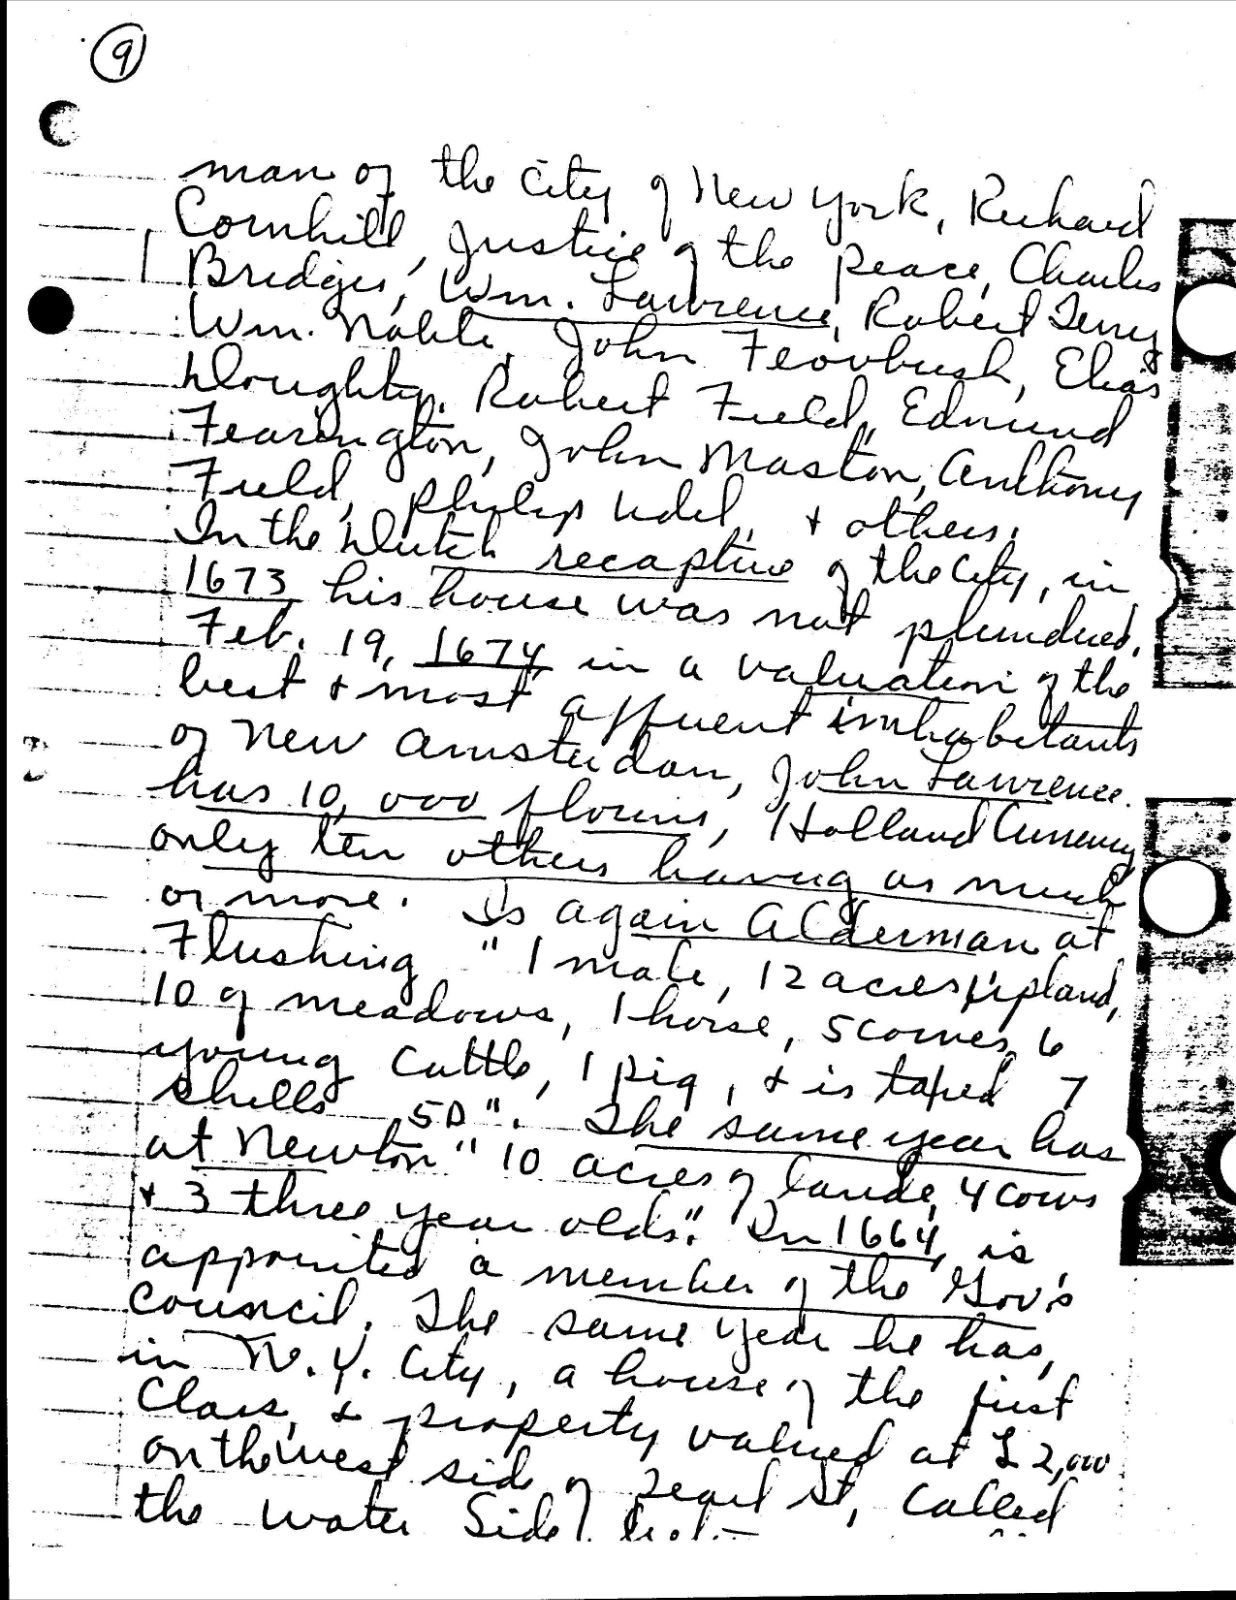 9
man of the City of New York, Richard
Cornhill, Justice of the peace, Charles
Bridges, Wm. Lawrence, Robert Terry
Wm. Noble, John Feovbush, Elias
Doughty, Robert Field, Edmund
Fearington, John Maston, Anthony
Field, Philip Udel, + others.
In the Dutch recapture of the City, in
1673 his house was not plundered.
Feb. 19, 1674, in a valuation of the
best + most affluent inhabitants
of New Amsterdam, John Lawrence
has 10,000 florins, Holland Currency
only ten others having as much
or more. Is again Alderman at
Flushing "1 male, 12 acres upland,
10 of meadows, 1 horse, 5 cows, 6
young cattle, 1 pig, + is taxed 7
shells 5D". The same year has
at Newton "10 acres of lande, 4 cows
+ 3 three year olds." In 1664, is
appointed a member of the Gov's
Council. The same year he has,
in N.Y. City, a house of the first
Class, + property valued at £2,000
on the west side of Pearl St, called
the Water Side